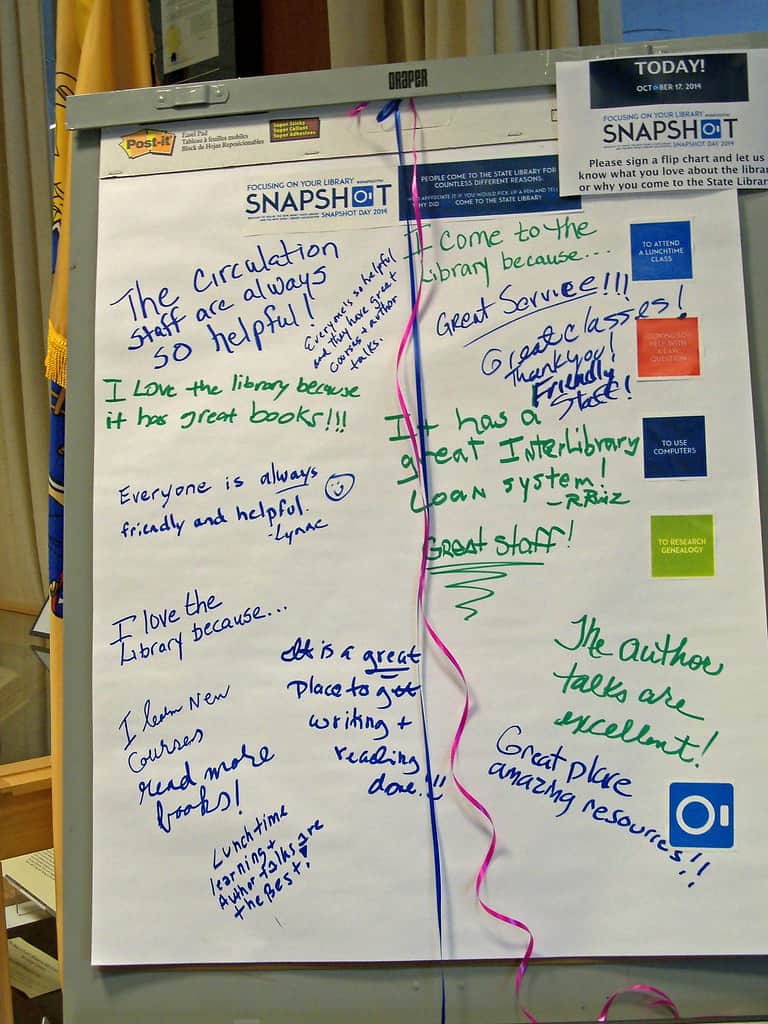 DRAPER
TODAY!
OCTOBER 17, 2014
FOCUSING ON YOUR LIBRARY
SNAPSHOT
SNAPSHOT DAY 2014
Please sign a flip chart and let us
know what you love about the library
or why you come to the State Library
Post-it
Easel Pad
Tableau à feuilles mobiles
Block de Hojas Reposicionables
Super Sticky
Super Collant
Super Adhesivas
FOCUSING ON YOUR LIBRARY
SNAPSHOT
SNAPSHOT DAY 2014
PEOPLE COME TO THE STATE LIBRARY FOR
COUNTLESS DIFFERENT REASONS.
APPRECIATE IT IF YOU WOULD PICK UP A PEN AND TELL
WHY DID COME TO THE STATE LIBRARY
The Circulation
Staff are always
so helpful!
Everyone is so helpful
and they have great
courses + author
talks.
I Love the library because
it has great books!!!
Everyone is always
friendly and helpful.
-Lynne
I love the
Library because...
I learn New
Courses
read more
books!
Lunchtime
learning +
Author talks are
the Best!
It is a great
place to get
writing +
reading
done!!!
I come to the
Library because...
Great Service!!!
Great classes!
Thank you!
Friendly
Staff!
It has a
great InterLibrary
Loan system!
-R Ruiz
Great staff!
The author
talks are
excellent!
Great place
amazing resources!!
TO ATTEND
A LUNCHTIME
CLASS
LOOKING FOR
HELP WITH
A LAW
QUESTION
TO USE
COMPUTERS
TO RESEARCH
GENEALOGY